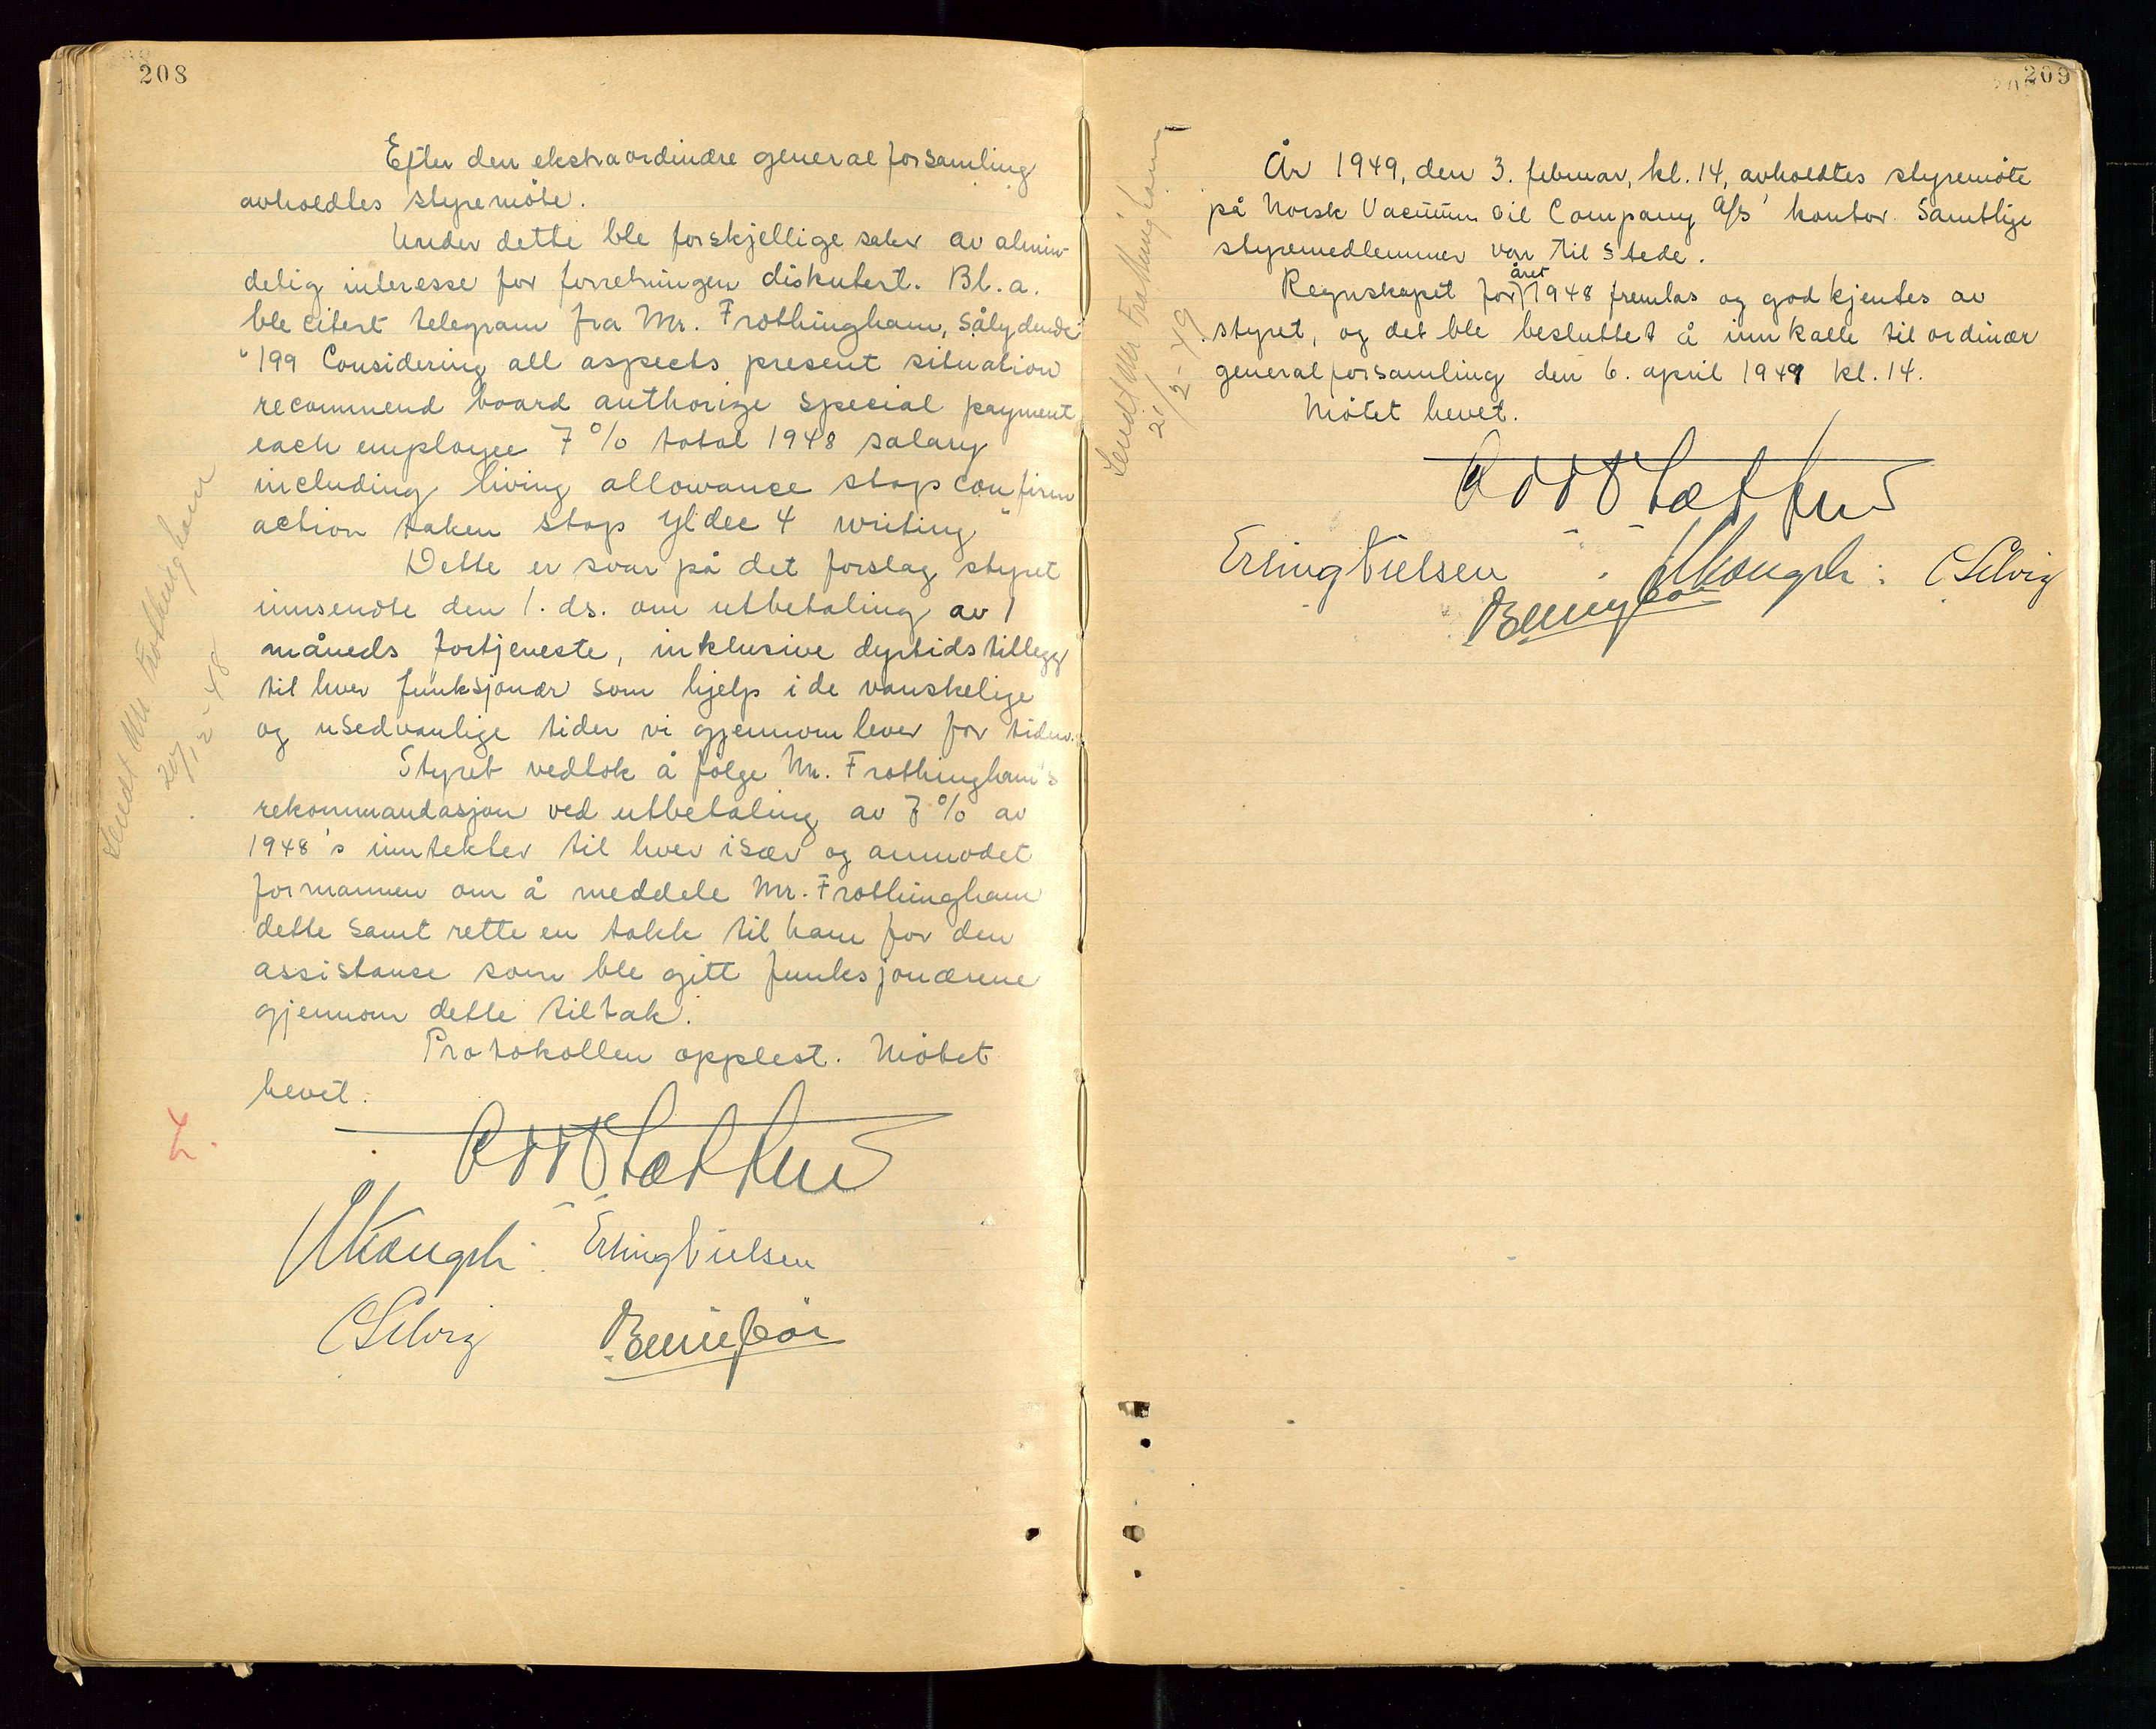 208
Efter den ekstraordinære generalforsamling
avholdtes styremöte.
Under dette ble forskjellige saker av almin-
delig interesse for forretningen diskutert. Bl.a.
ble citert telegram fra Mr. Frothingham, sålydende:
"199 Considering all aspects present situation
recommend board authorize special payment
each employee 7% total 1948 salary
including living allowance stop confirm
action taken stop yldec 4 writing"
Dette er svar på det forslag styret
innsendte den 1. ds. om utbetaling av 1
måneds fortjeneste, inklusive dyrtidstillegg
til hver funksjonær som hjelp i de vanskelige
og usedvanlige tider vi gjennomlever for tiden.
Styret vedtok å følge Mr. Frothingham's
rekommandasjon ved utbetaling av 7% av
1948's inntekter til hver især og anmodet
formannen om å meddele Mr. Frothingham
dette samt rette en takk til ham for den
assistanse som ble gitt funksjonærene
gjennom dette tiltak.
Protokollen opplest. Mötet
hevet.
Erling Nielsen
CSelvig
Sendt Mr Frothingham
20/12-48
209
År 1949, den 3. februar, kl. 14, avholdtes styremöte
på Norsk Vacuum Oil Company A/S' kontor. Samtlige
styremedlemmer var til stede.
Regnskapet for året 1948 fremlas og godkjentes av
styret, og det ble besluttet å innkalle til ordinær
generalforsamling den 6. april 1949 kl. 14.
Mötet hevet.
Erling Nielsen
CSelvig
Sendt Mr Frothingham
21/2-49